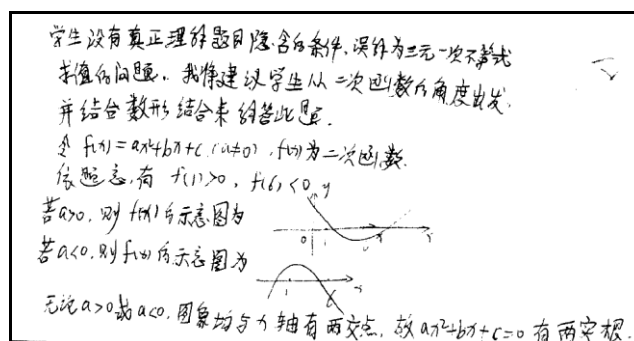 学生没有真正理解题目隐含的条件,误作为三元一次不等式
求值的问题。我将建议学生从二次函数的角度出发
并结合数形结合来解答此题.
令 f(x)=ax²+bx+c (a≠0), f(x)为二次函数.
依题意,有 f(1)>0, f(6)<0
若a>0,则f(x)的示意图为
y
0
1
6
x
若a<0,则f(x)的示意图为
1
6
x
无论a>0或a<0,图象均与x轴有两交点,故ax²+bx+c=0有两实根.